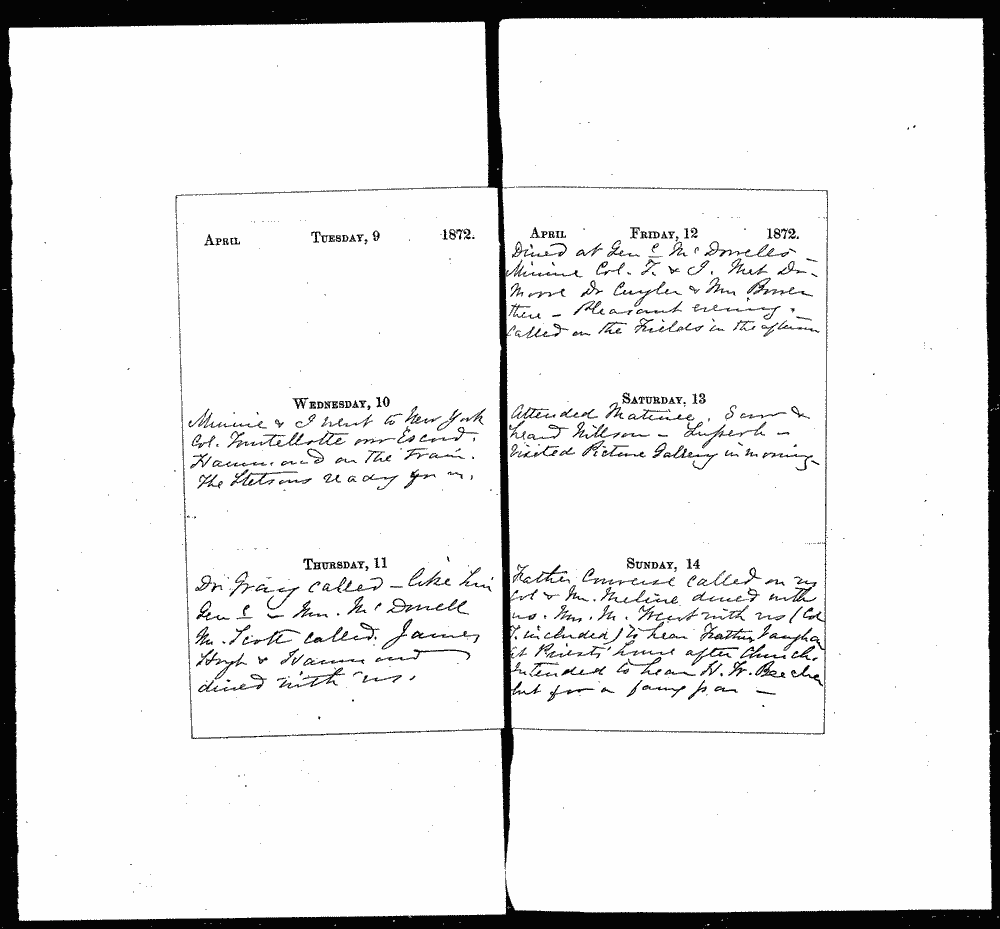 April Tuesday, 9 1872.
Wednesday, 10
Minnie & I went to New York
Col. Tourtellotte our Escort.
Hammond on the Train.
The Stetsons ready for us.
Thursday, 11
Dr. Gray called – like him
Gen & Mrs. McDowell
Mr. Scott called. James
Hoyt & Hammond
dined with us.
April Friday, 12 1872.
Dined at Gen McDowells –
Minnie Col. T. & I. Met Dr.
Moore Dr Cuyler & Mrs Bowen
there – Pleasant evening.
Called on the Fields in the afternoon
Saturday, 13
Attended Matinee. Saw &
heard Nillson – Superb –
Visited Picture Gallery in morning –
Sunday, 14
Father Converse called on us
Col & Mrs. Meline dined with
us. Mrs. M. Went with us (Col
T. included) to hear Father Vaughan
at Priests' house after Church.
Intended to hear H. W. Beecher
but for a